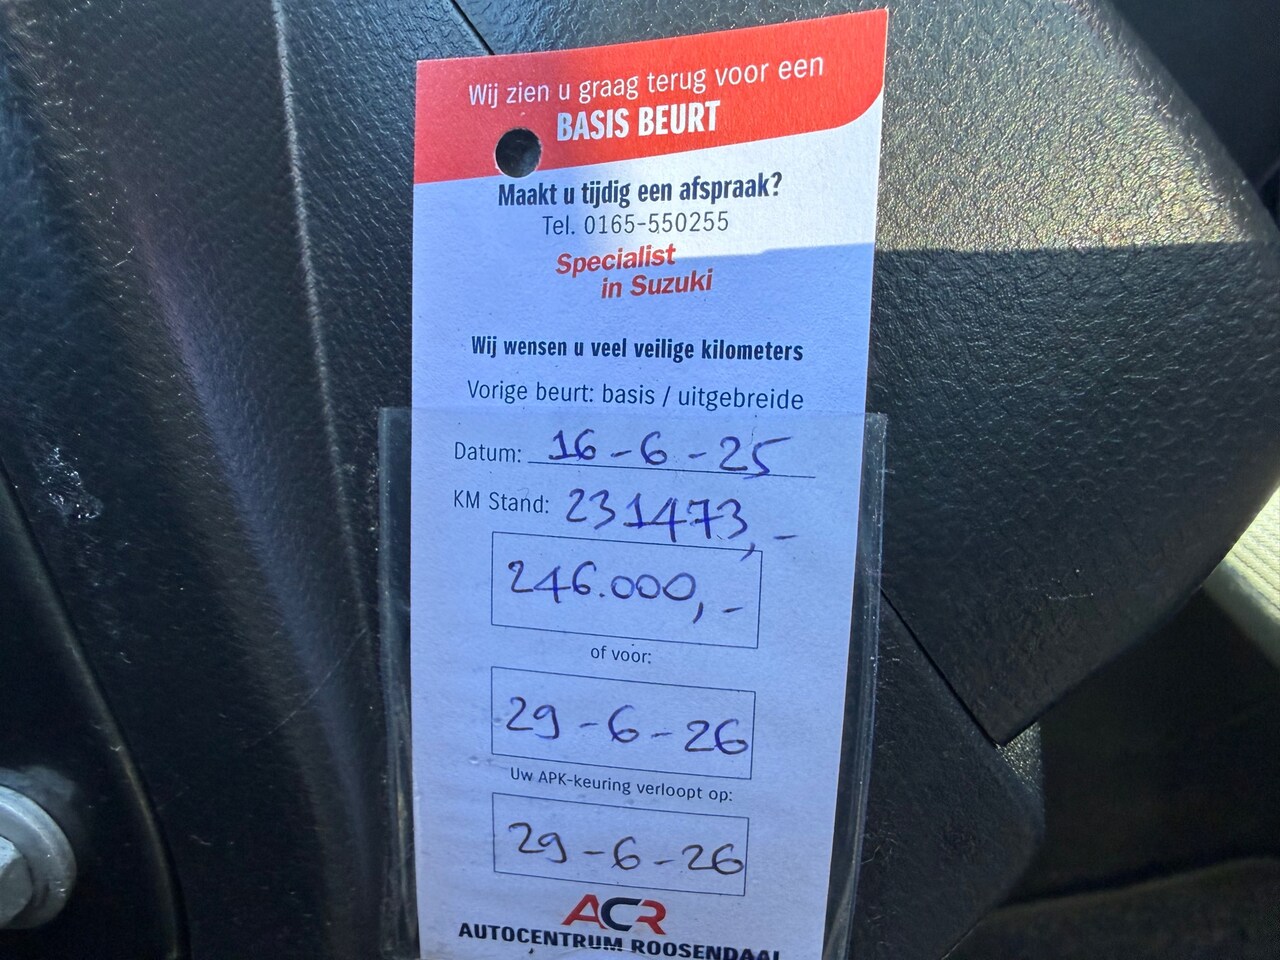 Wij zien u graag terug voor een
BASIS BEURT
Maakt u tijdig een afspraak?
Tel. 0165-550255
Specialist
in Suzuki
Wij wensen u veel veilige kilometers
Vorige beurt: basis / uitgebreide
Datum: 16-6-25
KM Stand: 231473,-
246.000,-
of voor:
29-6-26
Uw APK-keuring verloopt op:
29-6-26
ACR
AUTOCENTRUM ROOSENDAAL